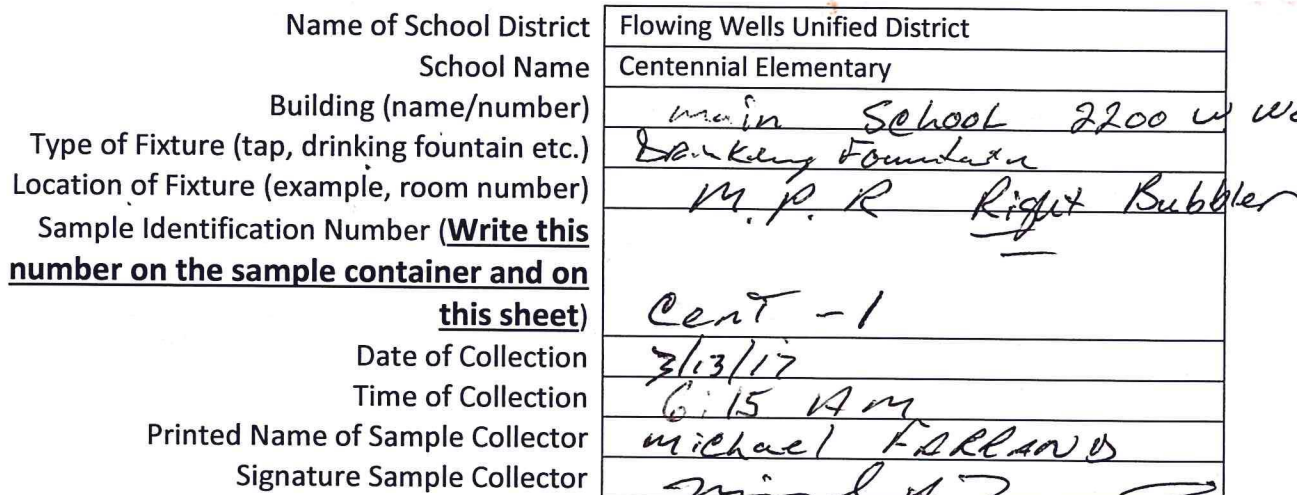 Name of School District Flowing Wells Unified District
School Name Centennial Elementary
Building (name/number) main School 2200 W
Type of Fixture (tap, drinking fountain etc.) Drinking Fountain
Location of Fixture (example, room number) M.P.R Right Bubbler
Sample Identification Number (Write this
number on the sample container and on
this sheet) CenT -1
Date of Collection 3/13/17
Time of Collection 6:15 AM
Printed Name of Sample Collector michael FARRAND
Signature Sample Collector